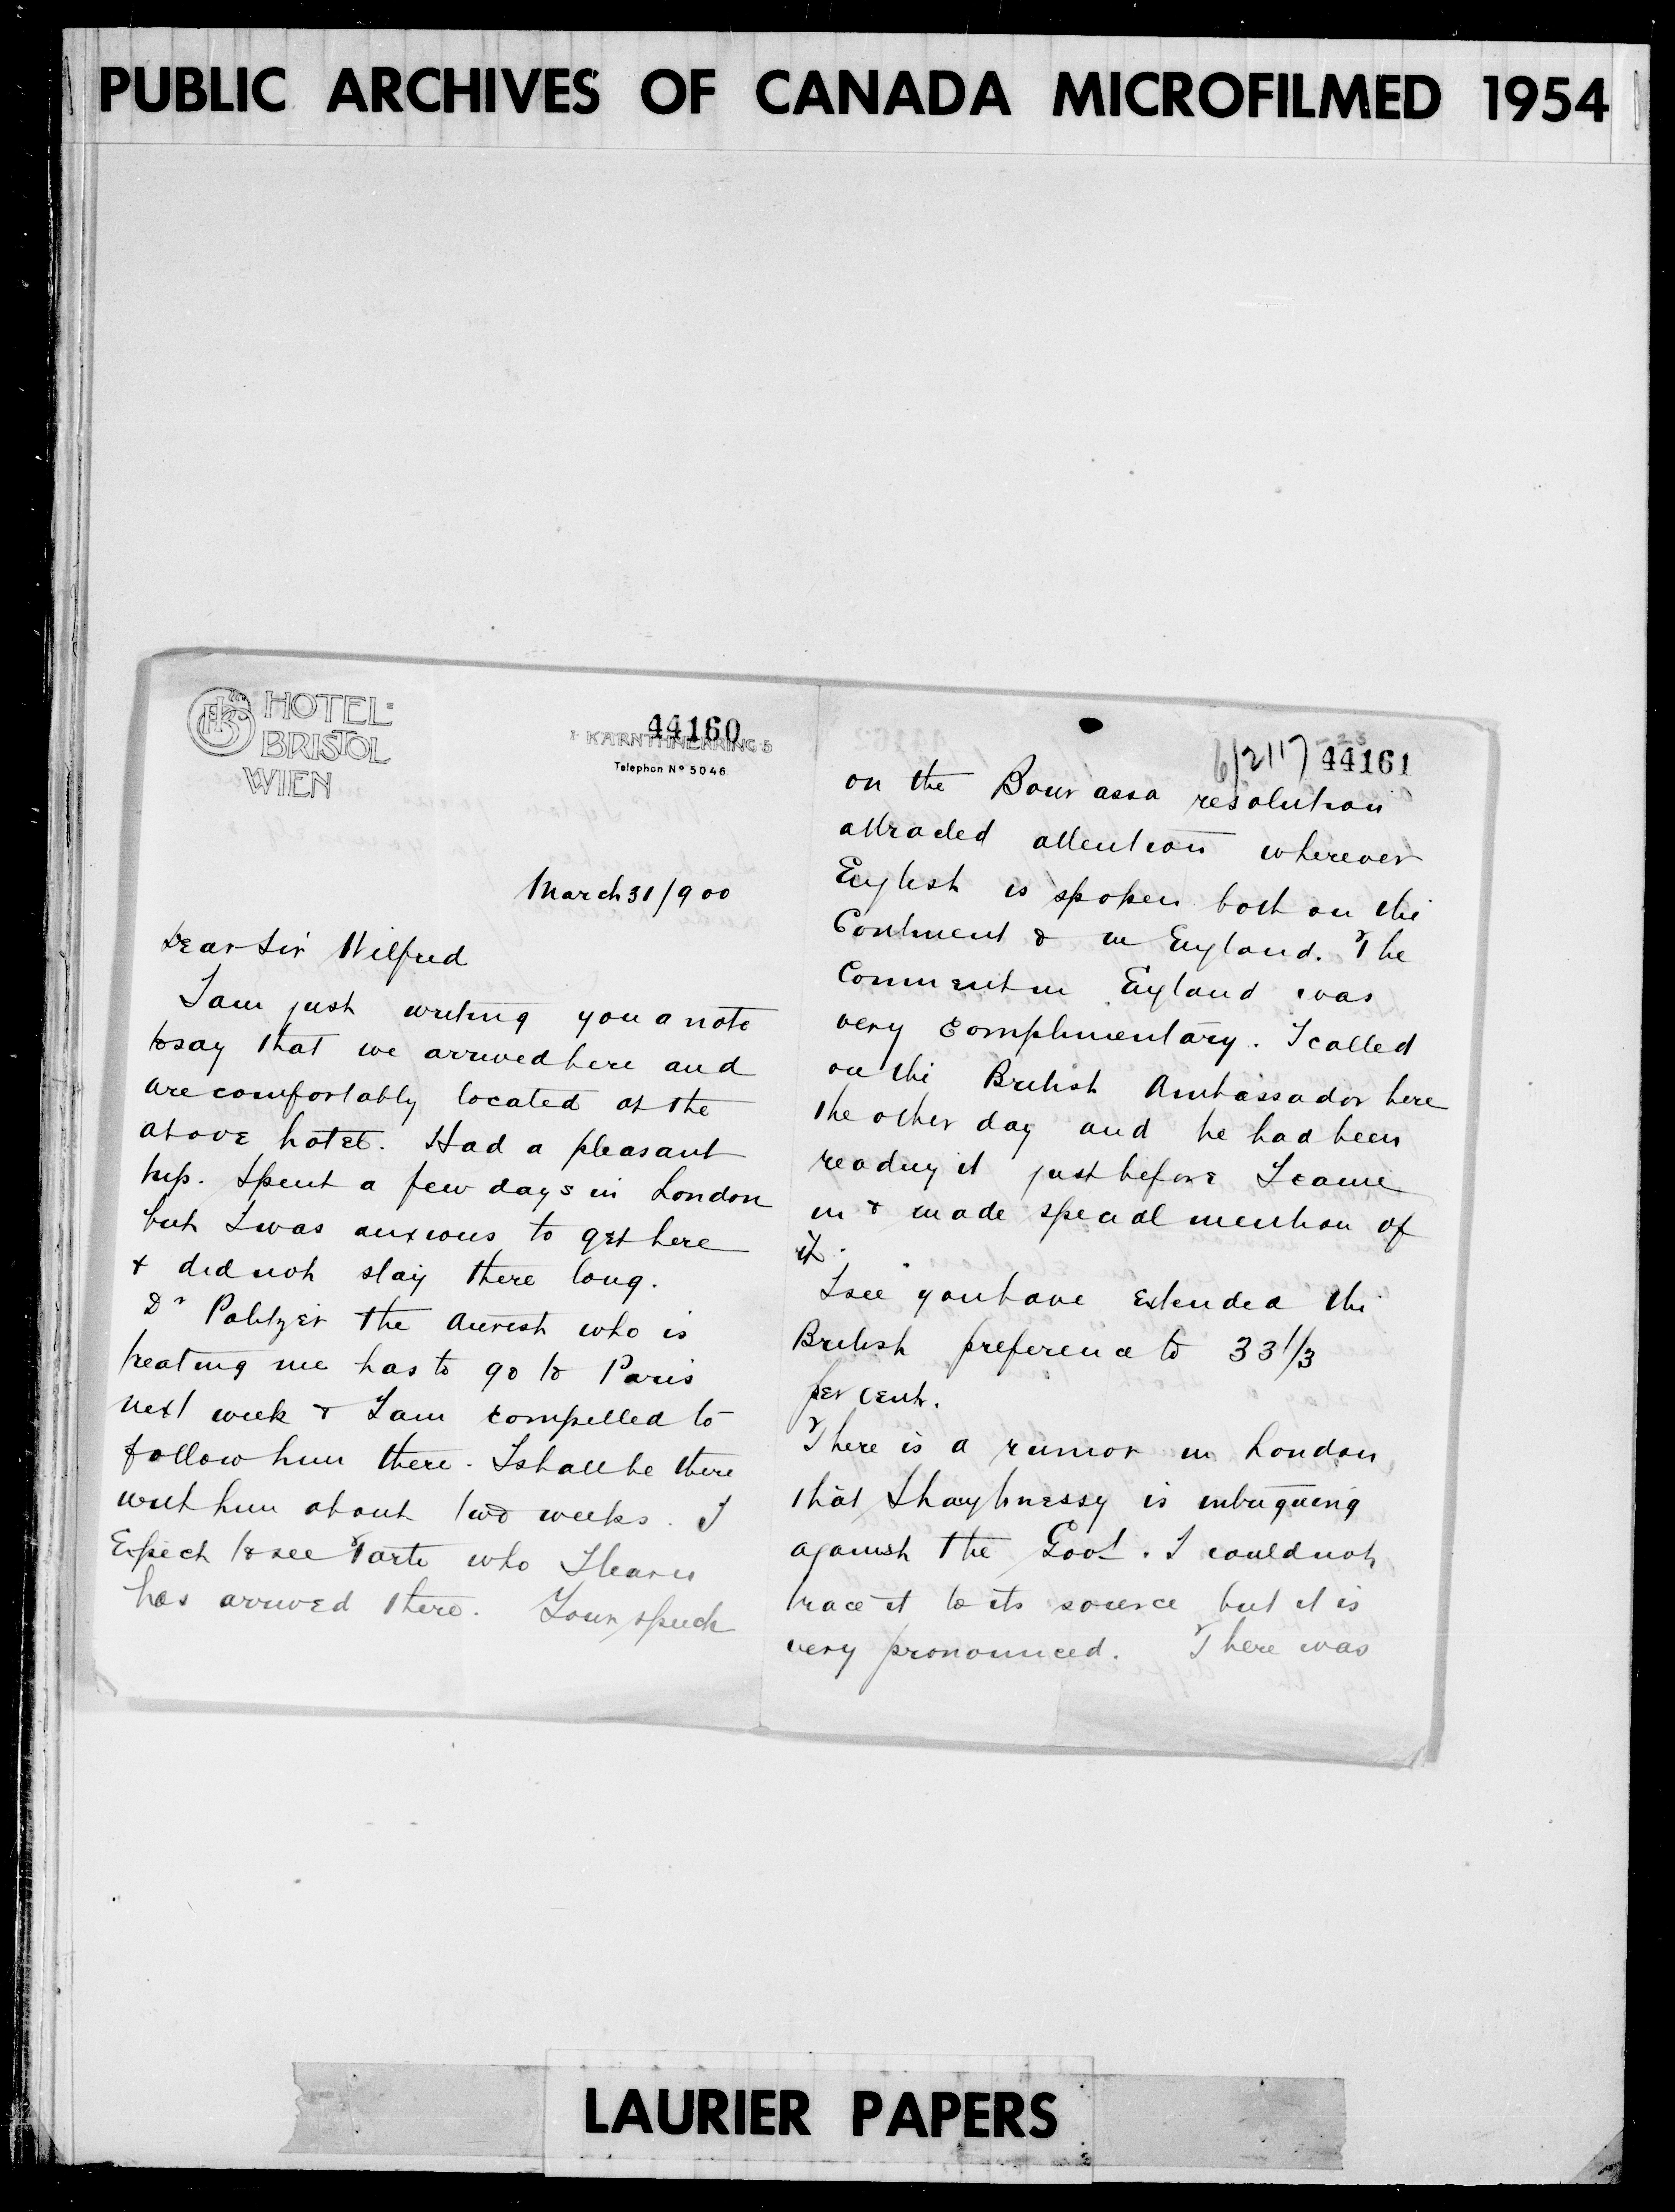 PUBLIC ARCHIVES OF CANADA MICROFILMED 1954
HOTEL-
BRISTOL
WIEN
44160
I KÄRNTHNERRING 5
Telephon Nº 5046
March 31/900
Dear Sir Wilfred
I am just writing you a note
to say that we arrived here and
are comfortably located at the
above hotel. Had a pleasant
trip. Spent a few days in London
but I was anxious to get here
& did not stay there long.
Dr Politzer the Aurist who is
treating me has to go to Paris
next week & I am compelled to
follow him there. I shall be there
with him about two weeks. I
Expect to see Tarte who I learn
has arrived there. Your speech
6/2117 44161
on the Bourassa resolution
attracted attention wherever
English is spoken both on the
Continent & in England. The
Comment in England was
very complimentary. I called
on the British Ambassador here
the other day and he had been
reading it just before I came
in & made special mention of
it.
I see you have extended the
British preference to 33 1/3
per cent.
There is a rumor in London
that Shaughnessy is intriguing
against the Govt. I could not
trace it to its source but it is
very pronounced. There was
LAURIER PAPERS